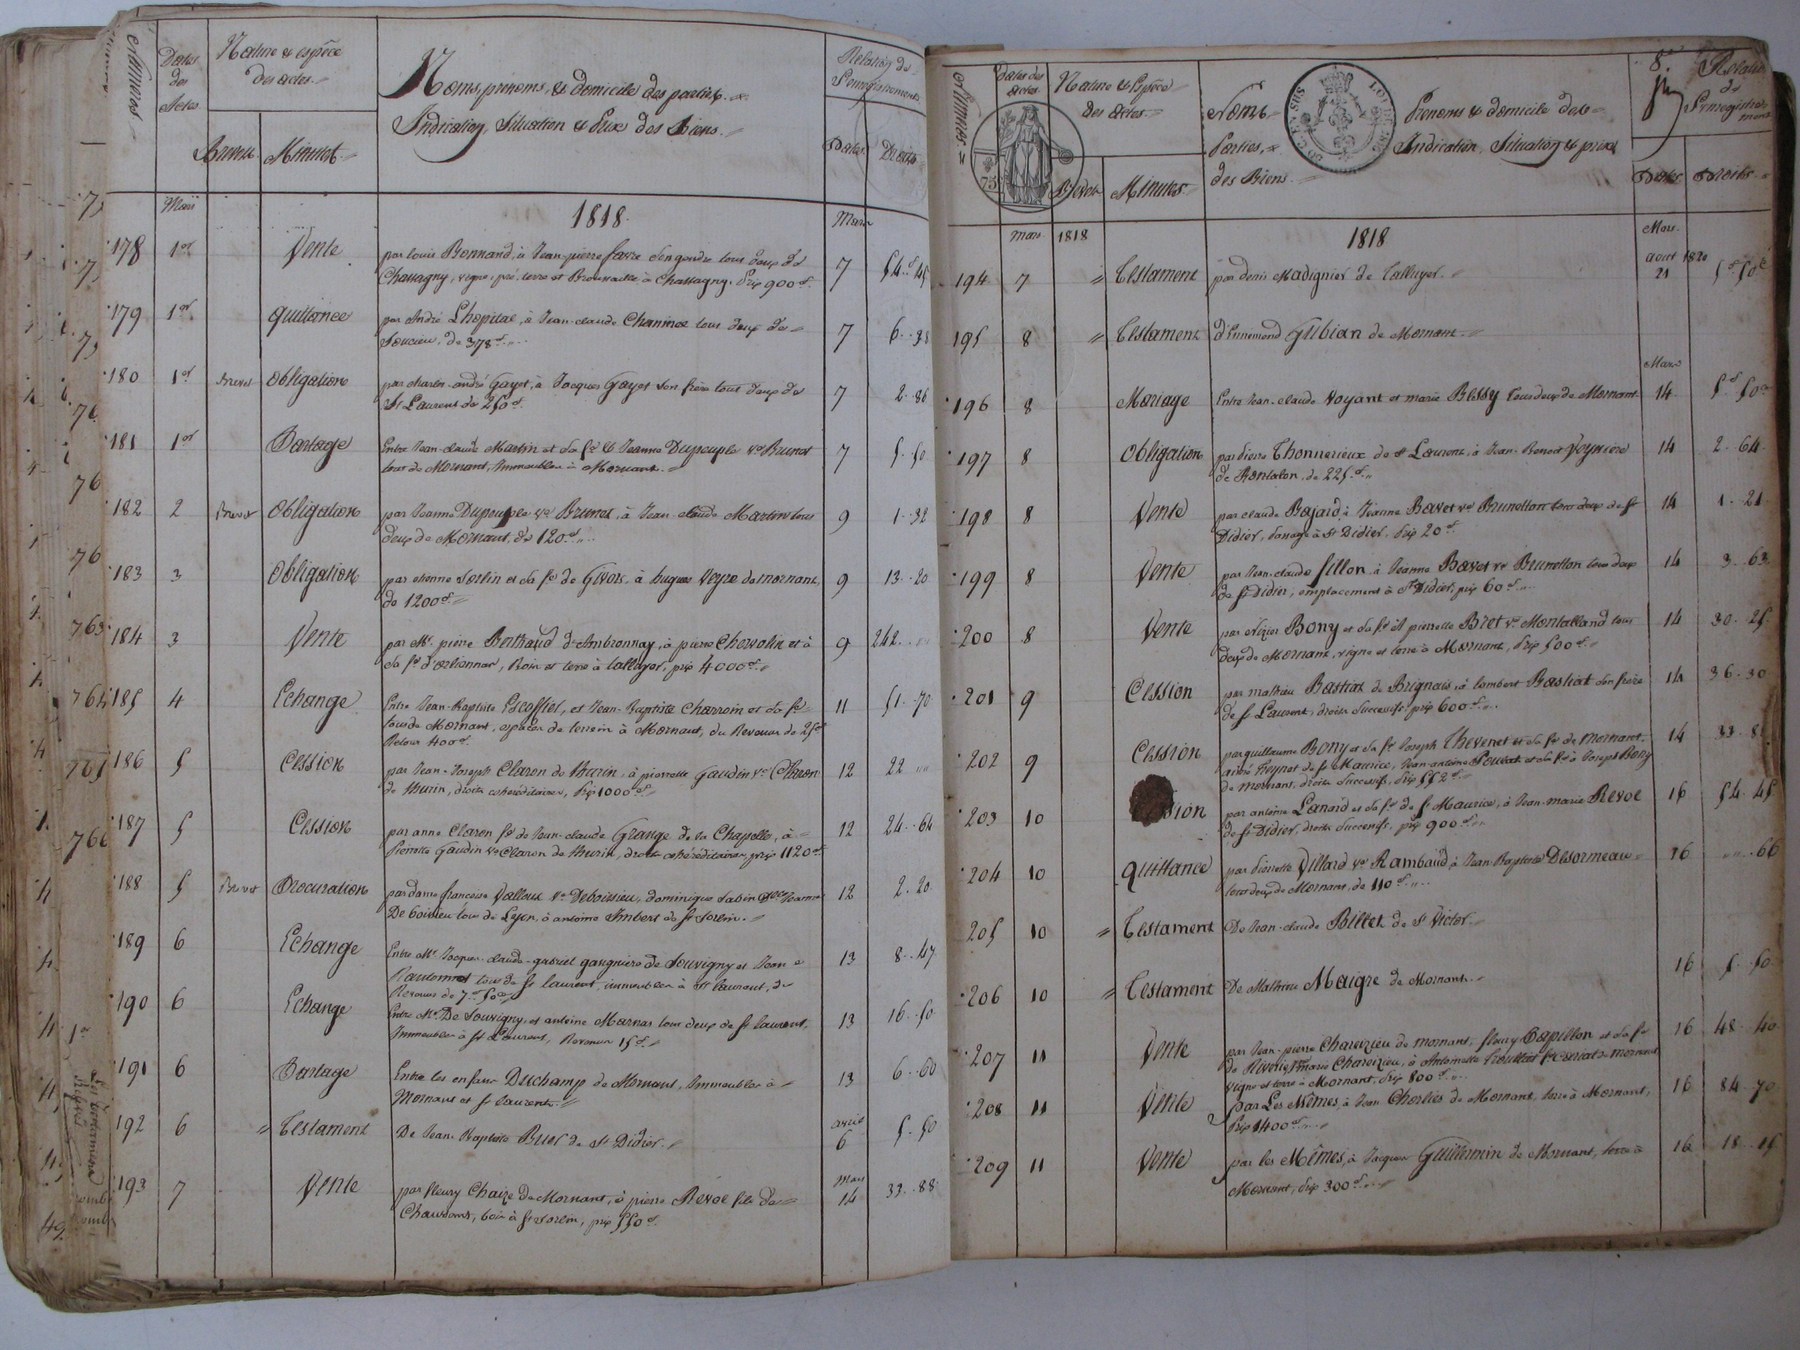 Numéros
Dates
des
Actes
Nature & espèce
des actes
Brevets Minutes
Noms, prénoms, & domicile des parties
Indication, Situation & Prix des Biens
Relation de
l'enregistrement
Dates Droits
Mars 1818 Mars
178 1er Vente par Louis Bonnard, à Jean-pierre favre tous deux de
Chassagny, vigne, pré, terre et Broussaille à Chassagny. Prix 900f. 7 54.f 45
179 1er quittance par André Lhopital, à Jean-claude Chanince tous deux de
Soucieu, de 378f. 7 6..38
180 1er Brevet Obligation par charles-andré Gayet, à Jacques Gayet son frère tous deux de
St Laurent de 250f. 7 2..86
181 1er Partage Entre Jean-claude Martin et sa fe & Jeanne Dupeuple ve Brunet
tous de Mornant, Immeubles à Mornant. 7 5..50
182 2 Brevet Obligation par Jeanne Dupeuple ve Brunet, à Jean-claude Martin tous
deux de Mornant, de 120f. 9 1..32
183 3 Obligation par etienne Sorlin et sa fe de Givors, à hugues Veyre de mornant
de 1200f. 9 13..20
184 3 Vente par Mr. pierre Berthaud d'Ambronnay, à pierre et à
sa fe d'orliennas, Bois et terre à talluyer, prix 4000f. 9 242..
185 4 Echange Entre Jean-Baptiste Escoffier, et Jean-Baptiste Charroin et sa fe
tous de Mornant, espaces de terrein à Mornant, du Revenu de 25f
Retour 400f. 11 51..70
186 5 Cession par Jean-Joseph Claron de thurin, à pierrette Gaudin ve Claron
de thurin, droits cohéréditaires, Prix 1000f. 12 22
187 5 Cession par anne Claron fe de Jean-claude Grange de la Chapelle, à
Pierrette Gaudin ve Claron de thurin, droits cohéréditaires, prix 1120f. 12 24..64
188 5 Brevet Procuration par dame françoise Valloux ve Deboissieu, dominique
De boissieu tous de Lyon, à antoine Imbert de St Sorlin. 12 2..20
189 6 Echange Entre Mr Jacques-claude-gabriel de Souvigny et Jean
tous de St laurent, immeubles à St laurent, du
Revenu de 7f 50c 13 8..47
190 6 Echange Entre Mr. De Souvigny, et antoine Marnas tous deux de St laurent,
Immeubles à St Laurent, Revenu 15f. 13 16..50
191 6 Partage Entre les enfans Duchamp de Mornant, Immeubles à
Mornant et St laurent. 13 6..60
192 6 " Testament De Jean-Baptiste de St Didier. avril
6 5..50
193 7 Vente par fleury Chaize de Mornant, à pierre Revol fils de
Chaussans, bois à St Sorlin, prix 550f. mars
14 33..88
Numéros
Dates des
actes
Nature & Espèce
des actes
Brevets Minutes
75c
Noms
Parties
des Biens
Prénoms & domicile des
Indication, Situation & prix
8.e
Relation
de
l'enregistre
ment
Dates Droits
Mars 1818 1818 Mars
194 7 " Testament par denis Madignier de Talluyer. août 1820
21 5f.50c
195 8 " Testament d'Ennemond Gubian de Mornant.
Mars
196 8 Mariage Entre Jean-claude Voyant et marie Bessy tous deux de Mornant. 14 5f.50c
197 8 Obligation par pierre Thonnerieux de St Laurent, à Jean-Benoit
de Rontalon, de 225f. 14 2..64
198 8 Vente par claude Bajard, à Jeanne Bavet ve Brunetton tous deux de St
Didier, à St Didier, prix 20f. 14 1..21
199 8 Vente par Jean-claude fillon, à Jeanne Bavet ve Brunetton tous deux
de St Didier, emplacement à St Didier, prix 60f. 14 3..63
200 8 Vente par Nizier Bony et sa fe à pierrette Biet ve Montalland tous
deux de Mornant, vigne et terre à Mornant, Prix 500f. 14 30..25
201 9 Cession par mathieu Bastiat de Brignais, à lambert Bastiat son frère
de St Laurent, droits Successifs, prix 600f. 14 36..30
202 9 Cession par guillaume Bony et sa fe Joseph Thevenet et sa fe de Mornant,
de St Maurice, Jean-antoine et sa fe à Joseph Bony
de mornant, droits Successifs, Prix 552f. 14 33..8
203 10 sion par antoine Lanard et sa fe de St Maurice, à Jean-marie Revol
de St Didier, droits Successifs, prix 900f. 16 54..45
204 10 Quittance par pierrette Villard ve Rambaud à Jean-Baptiste Desormeau
tous deux de Mornant, de 110f. 16 ..66
205 10 " Testament De Jean-claude Billet de St Victor.
206 10 " Testament De Mathieu Maigre de Mornant. 16 5..50
207 11 Vente par Jean-pierre Charezieu de mornant, fleury Papillon et sa fe
de Riverie, marie Charezieu, à Antoinette de mornant
vigne et terre à Mornant, prix 800f. 16 48..40
208 11 Vente par Les Mêmes, à Jean Charles de Mornant, terre à Mornant,
Prix 1400f. 16 84..70
209 11 Vente par les Mêmes, à Jacques Guillermin de Mornant, terre à
Mornant, prix 300f. 16 18..15